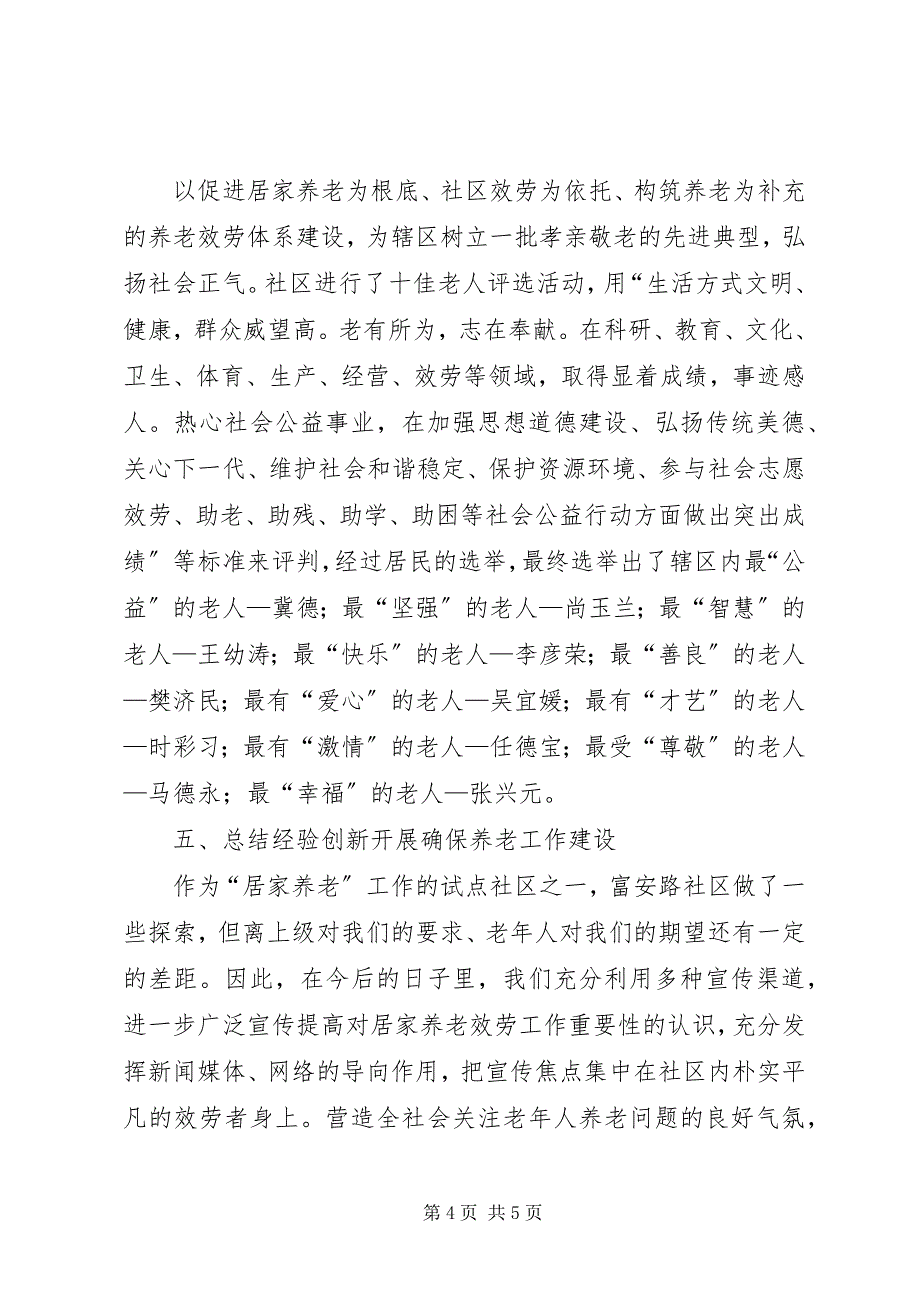 以促进居家养老为根底、社区效劳为依托、构筑养老为补充
的养老效劳体系建设，为辖区树立一批孝亲敬老的先进典型，弘
扬社会正气。社区进行了十佳老人评选活动，用“生活方式文明、
健康，群众威望高。老有所为，志在奉献。在科研、教育、文化、
卫生、体育、生产、经营、效劳等领域，取得显着成绩，事迹感
人。热心社会公益事业，在加强思想道德建设、弘扬传统美德、
关心下一代、维护社会和谐稳定、保护资源环境、参与社会志愿
效劳、助老、助残、助学、助困等社会公益行动方面做出突出成
绩〞等标准来评判，经过居民的选举，最终选举出了辖区内最“公
益〞的老人—冀德；最“坚强〞的老人—尚玉兰；最“智慧〞的
老人—王幼涛；最“快乐〞的老人—李彦荣；最“善良〞的老人
—樊济民；最有“爱心〞的老人—吴宜媛；最有“才艺〞的老人
—时彩习；最有“激情〞的老人—任德宝；最受“尊敬〞的老人
—马德永；最“幸福〞的老人—张兴元。
五、总结经验创新开展确保养老工作建设
作为“居家养老〞工作的试点社区之一，富安路社区做了一
些探索，但离上级对我们的要求、老年人对我们的期望还有一定
的差距。因此，在今后的日子里，我们充分利用多种宣传渠道，
进一步广泛宣传提高对居家养老效劳工作重要性的认识，充分发
挥新闻媒体、网络的导向作用，把宣传焦点集中在社区内朴实平
凡的效劳者身上。营造全社会关注老年人养老问题的良好气氛，
第 4 页 共 5 页